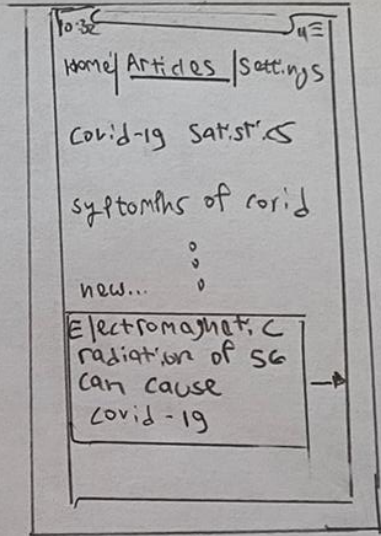 10:32 4G
Home | Articles | Settings
Covid-19 Satistics
syptomths of covid
new...
Electromagnetic
radiation of 5G
can cause
covid-19